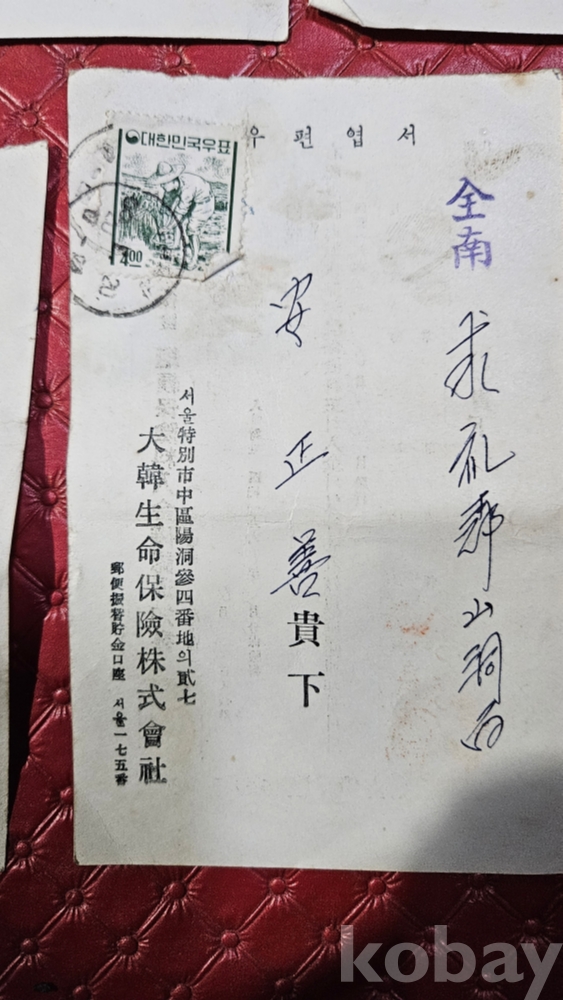 우편엽서
대한민국우표
4.00
全南
求礼郡山洞面
安正善貴下
서울特別市中區陽洞參四番地의貳七
大韓生命保險株式會社
郵便振替貯金口座 서울一七五番
kobay